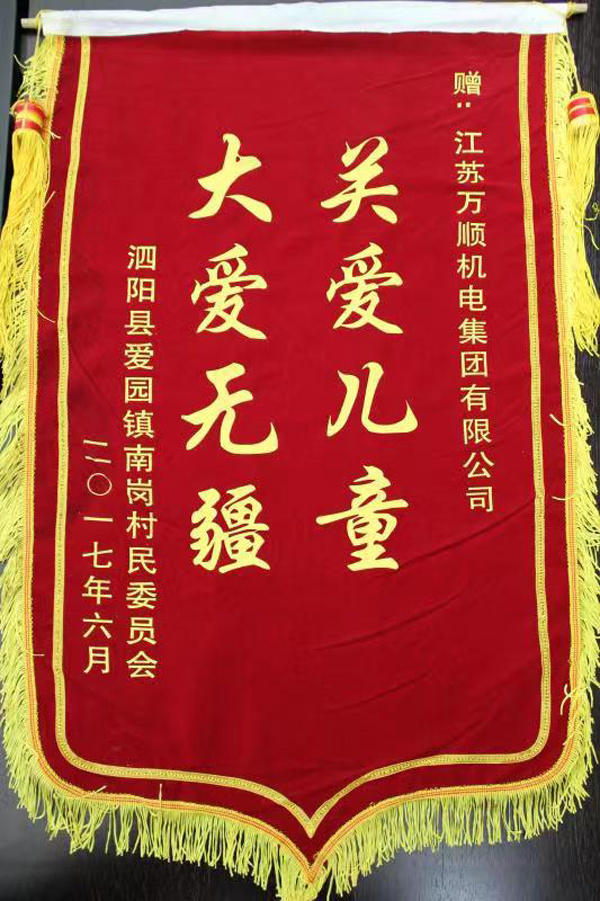 赠：江苏万顺机电集团有限公司
关爱儿童
大爱无疆
泗阳县爱园镇南岗村民委员会
二〇一七年六月